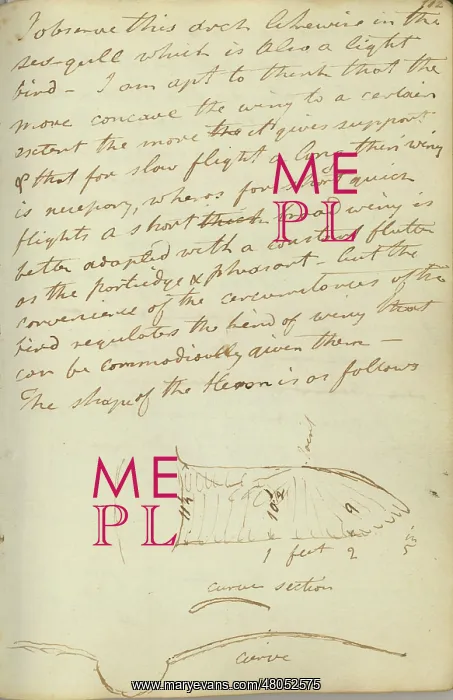 102
I observe this arch likewise in the
sea-gull which is Also a light
bird - I am apt to think that the
more concave the wing to a certain
extent the more the it gives support
& that for slow flight a long thin wing
is necessary, wheras for short quick
flights a short thick broad wing is
better adapted with a constant flutter
as the partridge & pheasant - but the
convenience of the circumstances of the
bird regulates the kind of wing that
can be commodiously given them -
The shape of the Heron is as follows
ME
PL
joint
ME
PL
11½
10½
9
1 feet 2
curve section
curve
www.maryevans.com/48052575